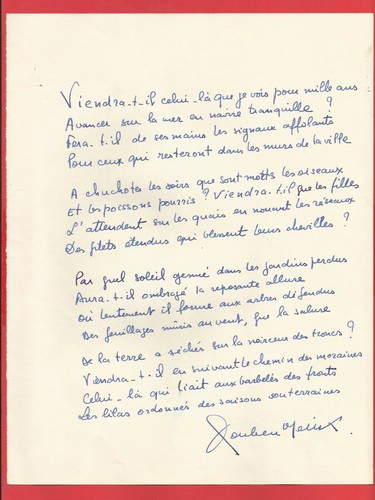 Viendra-t-il celui-là que je vois pour mille ans
Avancer sur la mer en navire tranquille ?
Fera-t-il de ses mains les signaux affolants
Pour ceux qui resteront dans les murs de la ville

A chuchoter les soirs que sont morts les oiseaux
Et les poissons pourris ? Viendra-t-il que les filles
L'attendent sur les quais en nouant les réseaux
Des filets étendus qui blessent leurs chevilles ?

Par quel soleil germé dans les jardins perdus
Aura-t-il ombragé la reposante allure
Où lentement il forme aux arbres défendus
Des feuillages mûris au vent, que la salure

De la terre a séchés sur la noirceur des troncs ?
Viendra-t-il en suivant le chemin des moraines
Celui-là qui liait aux barbelés des fronts
Les lilas ordonnés des saisons souterraines